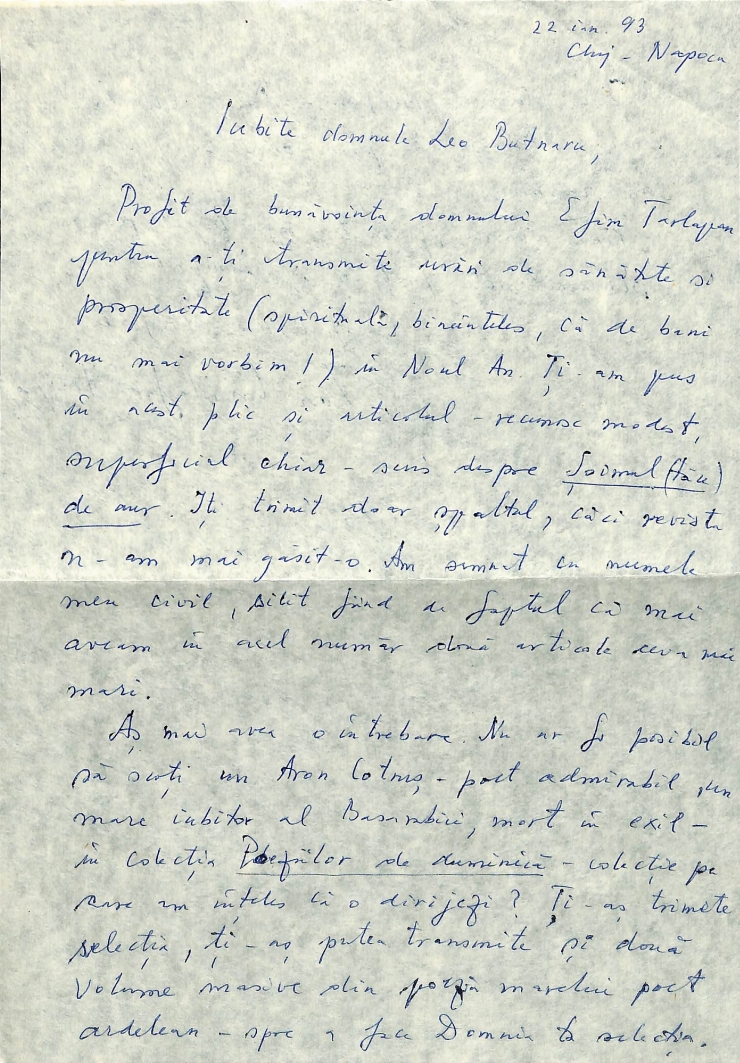 22 ian. 93
Cluj - Napoca
Iubite domnule Leo Butnaru,
Profit de bunăvoința domnului Efim Tarlapan
pentru a-ți transmite urări de sănătate si
prosperitate (spirituală, bineînțeles, că de bani
nu mai vorbim!) în Noul An. Ți-am pus
în acest plic și articolul - recunosc modest,
superficial chiar - scris despre Șoimul
de aur. Iți trimit doar șpaltul, căci revista
n-am mai găsit-o. Am semnat cu numele
meu civil, silit fiind de faptul că mai
aveam în acel număr două articole ceva mai
mari.
Aș mai avea o întrebare. Nu ar fi posibil
să scoți un Aron Cotruș, - poet admirabil, un
mare iubitor al Basarabiei, mort în exil -
în colecția Poeților de duminică - colecție pe
care am înțeles că o dirijezi? Ți-aș trimite
selecția, ți-aș putea transmite și două
volume masive din poezia marelui poet
ardelean - spre a face Domnia ta selecția.